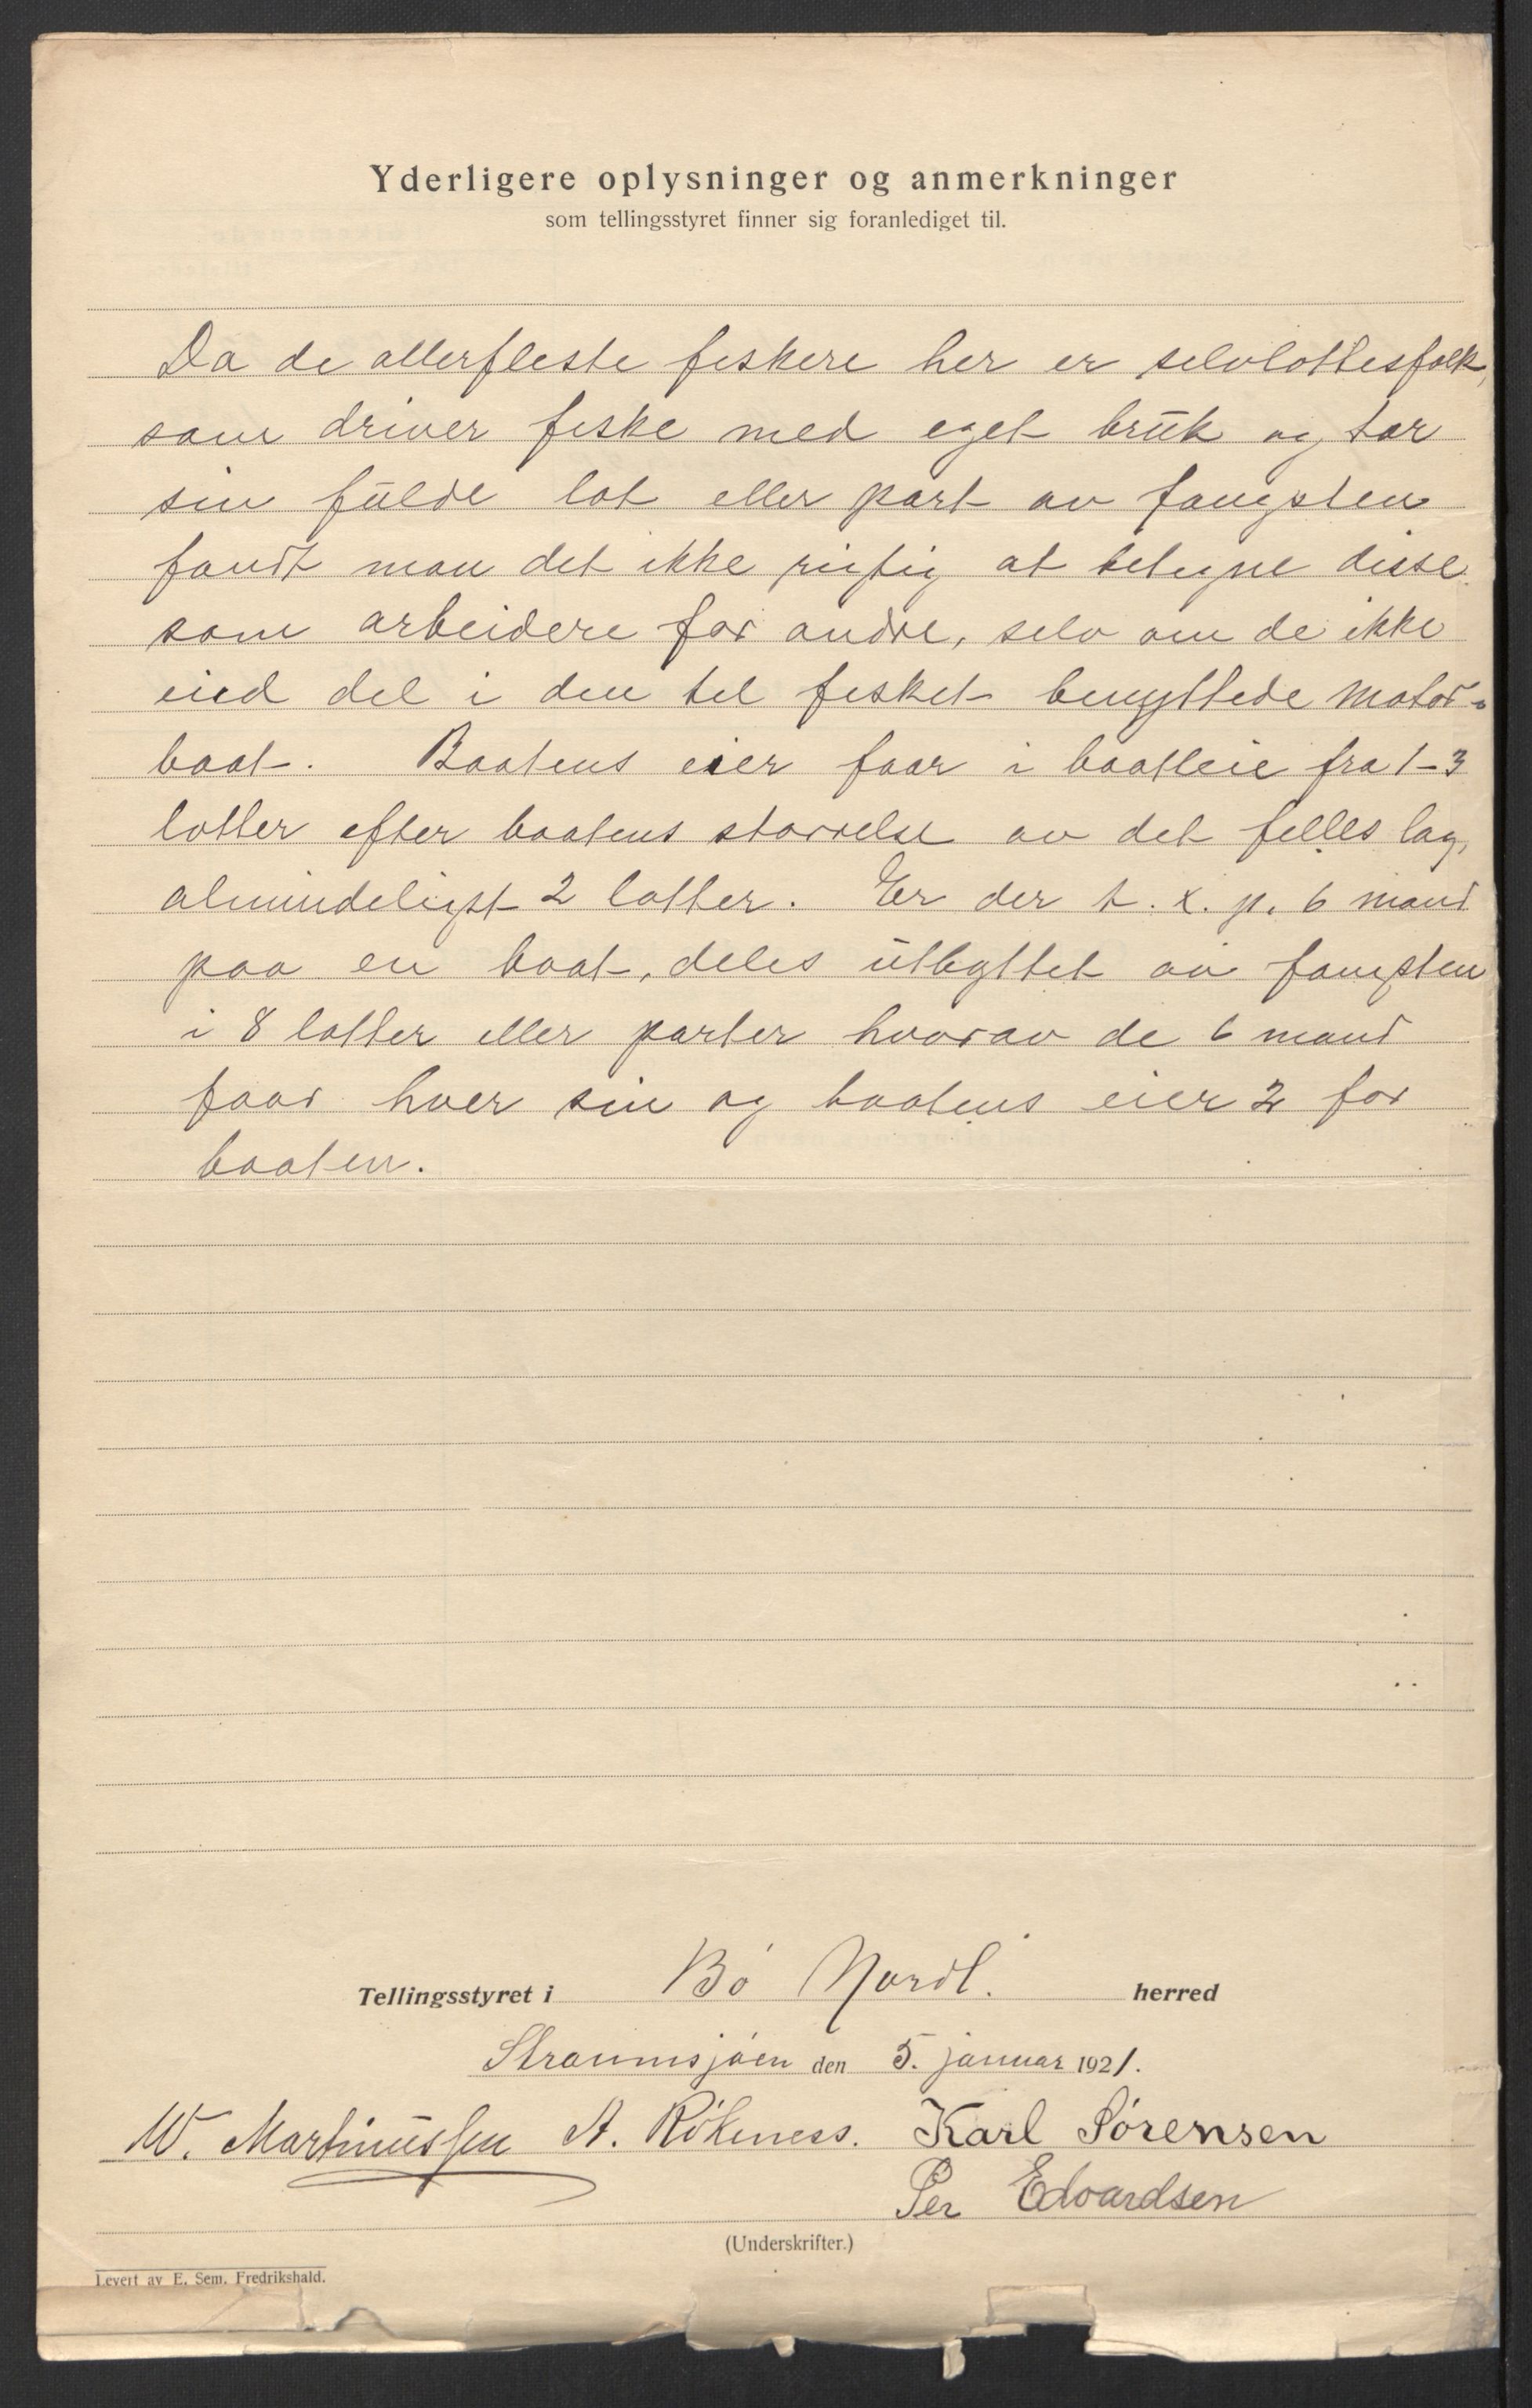 Yderligere oplysninger og anmerkninger
som tellingsstyret finner sig foranlediget til.
Da de allerfleste fiskere her er selvlottesfolk,
som driver fiske med eget bruk og tar
sin fulde lot eller part av fangsten
fandt man det ikke rigtig at betegne disse
som arbeidere for andre, selv om de ikke
eied del i den til fisket benyttede motor-
baat. Baatens eier faar i baatleie fra 1-3
lotter efter baatens størrelse av det felles lag,
almindeligst 2 lotter. Er der t. x. p. 6 mand
paa en baat, deles utbyttet av fangsten
i 8 lotter eller parter hvorav de 6 mand
faar hver sin og baatens eier 2 for
baaten.
Tellingsstyret i Bø Nordl. herred
Straumsjøen den 5. januar 1921.
W. Martinussen A. Rökeness. Karl Sørensen
Per Edvardsen
(Underskrifter.)
Levert av E. Sem, Fredrikshald.